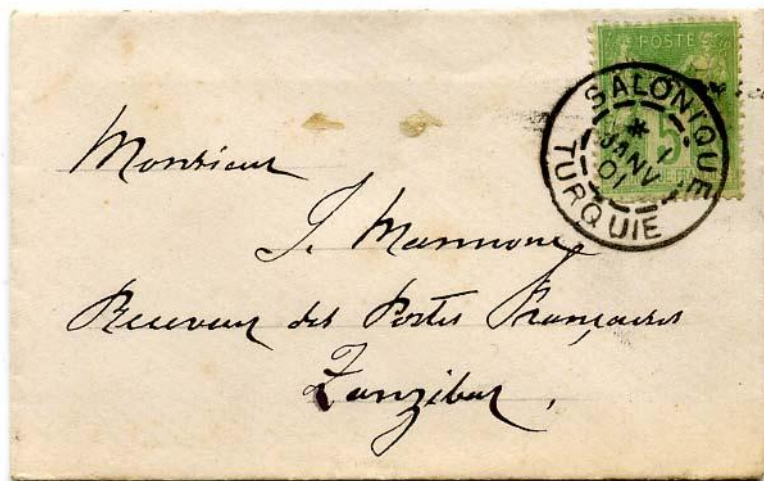 POSTE
SALONIQUE
* 1
JANV
01
TURQUIE
5
Monsieur
J. Mannone
Receveur des Postes Françaises
Zanzibar.